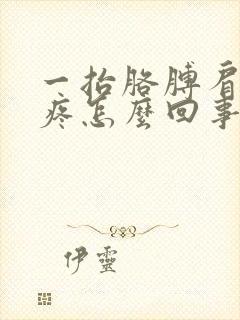 一抬胳膊肩
疼怎麼回事
伊靈